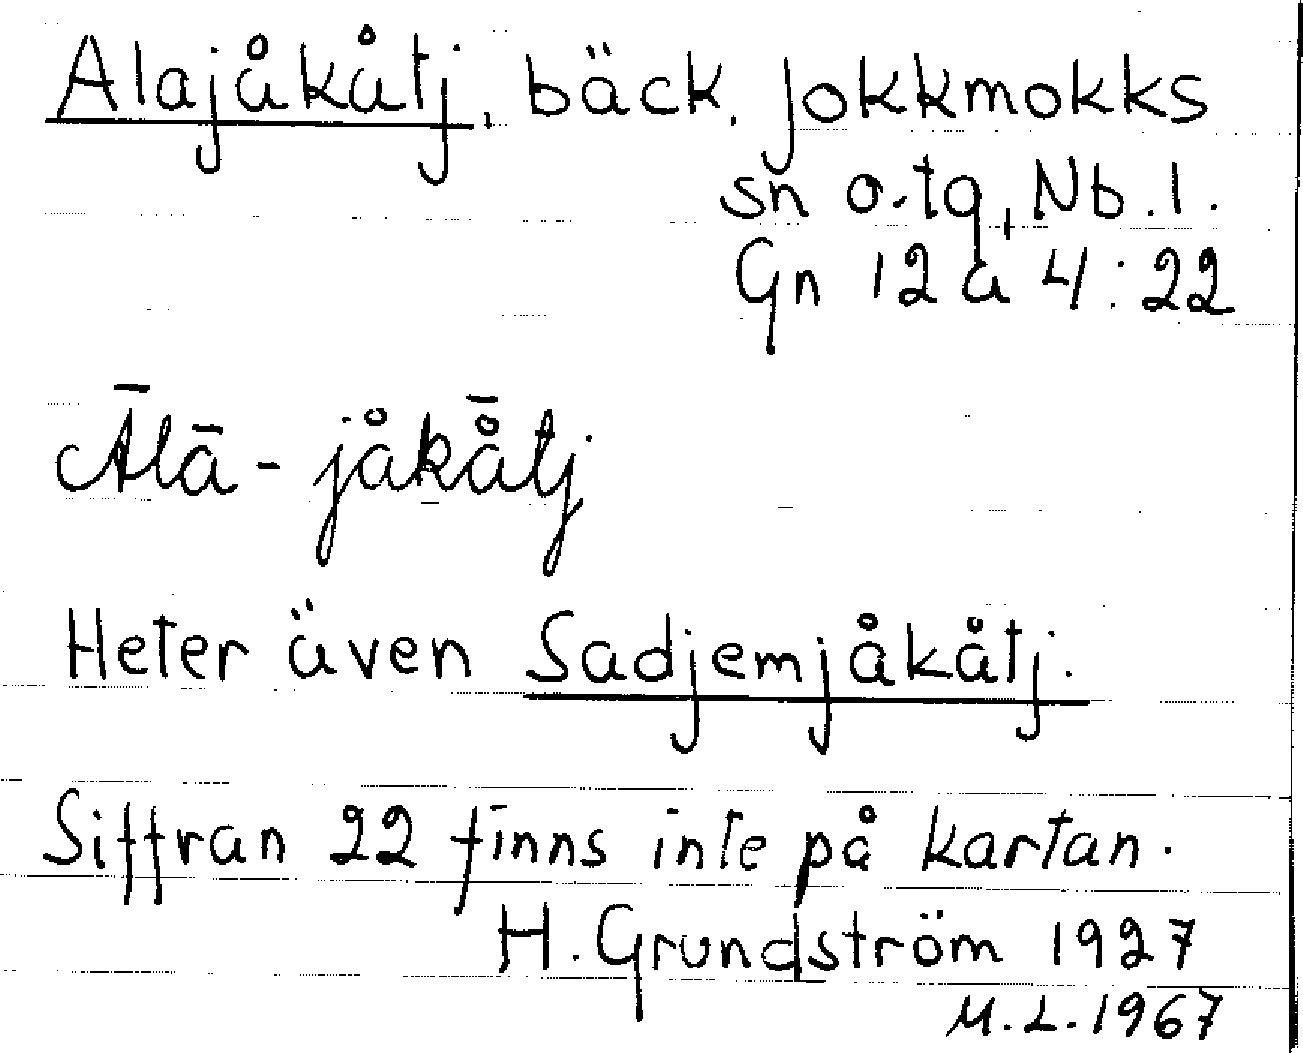 Alajåkåtj, bäck, Jokkmokks
sn o. tg, Nb. l.
Gn 12 a 4:22
Ālā-jåkå̄tj
Heter även Sadjemjåkåtj.
Siffran 22 finns inte på kartan.
H. Grundström 1927
M.L. 1967